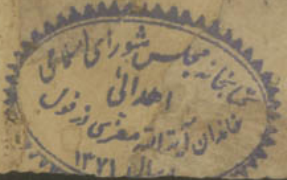 کتابخانه مجلس شورای اسلامی
اهدائی
خاندان آیة الله مغزی دزفولی
سال ۱۳۷۱